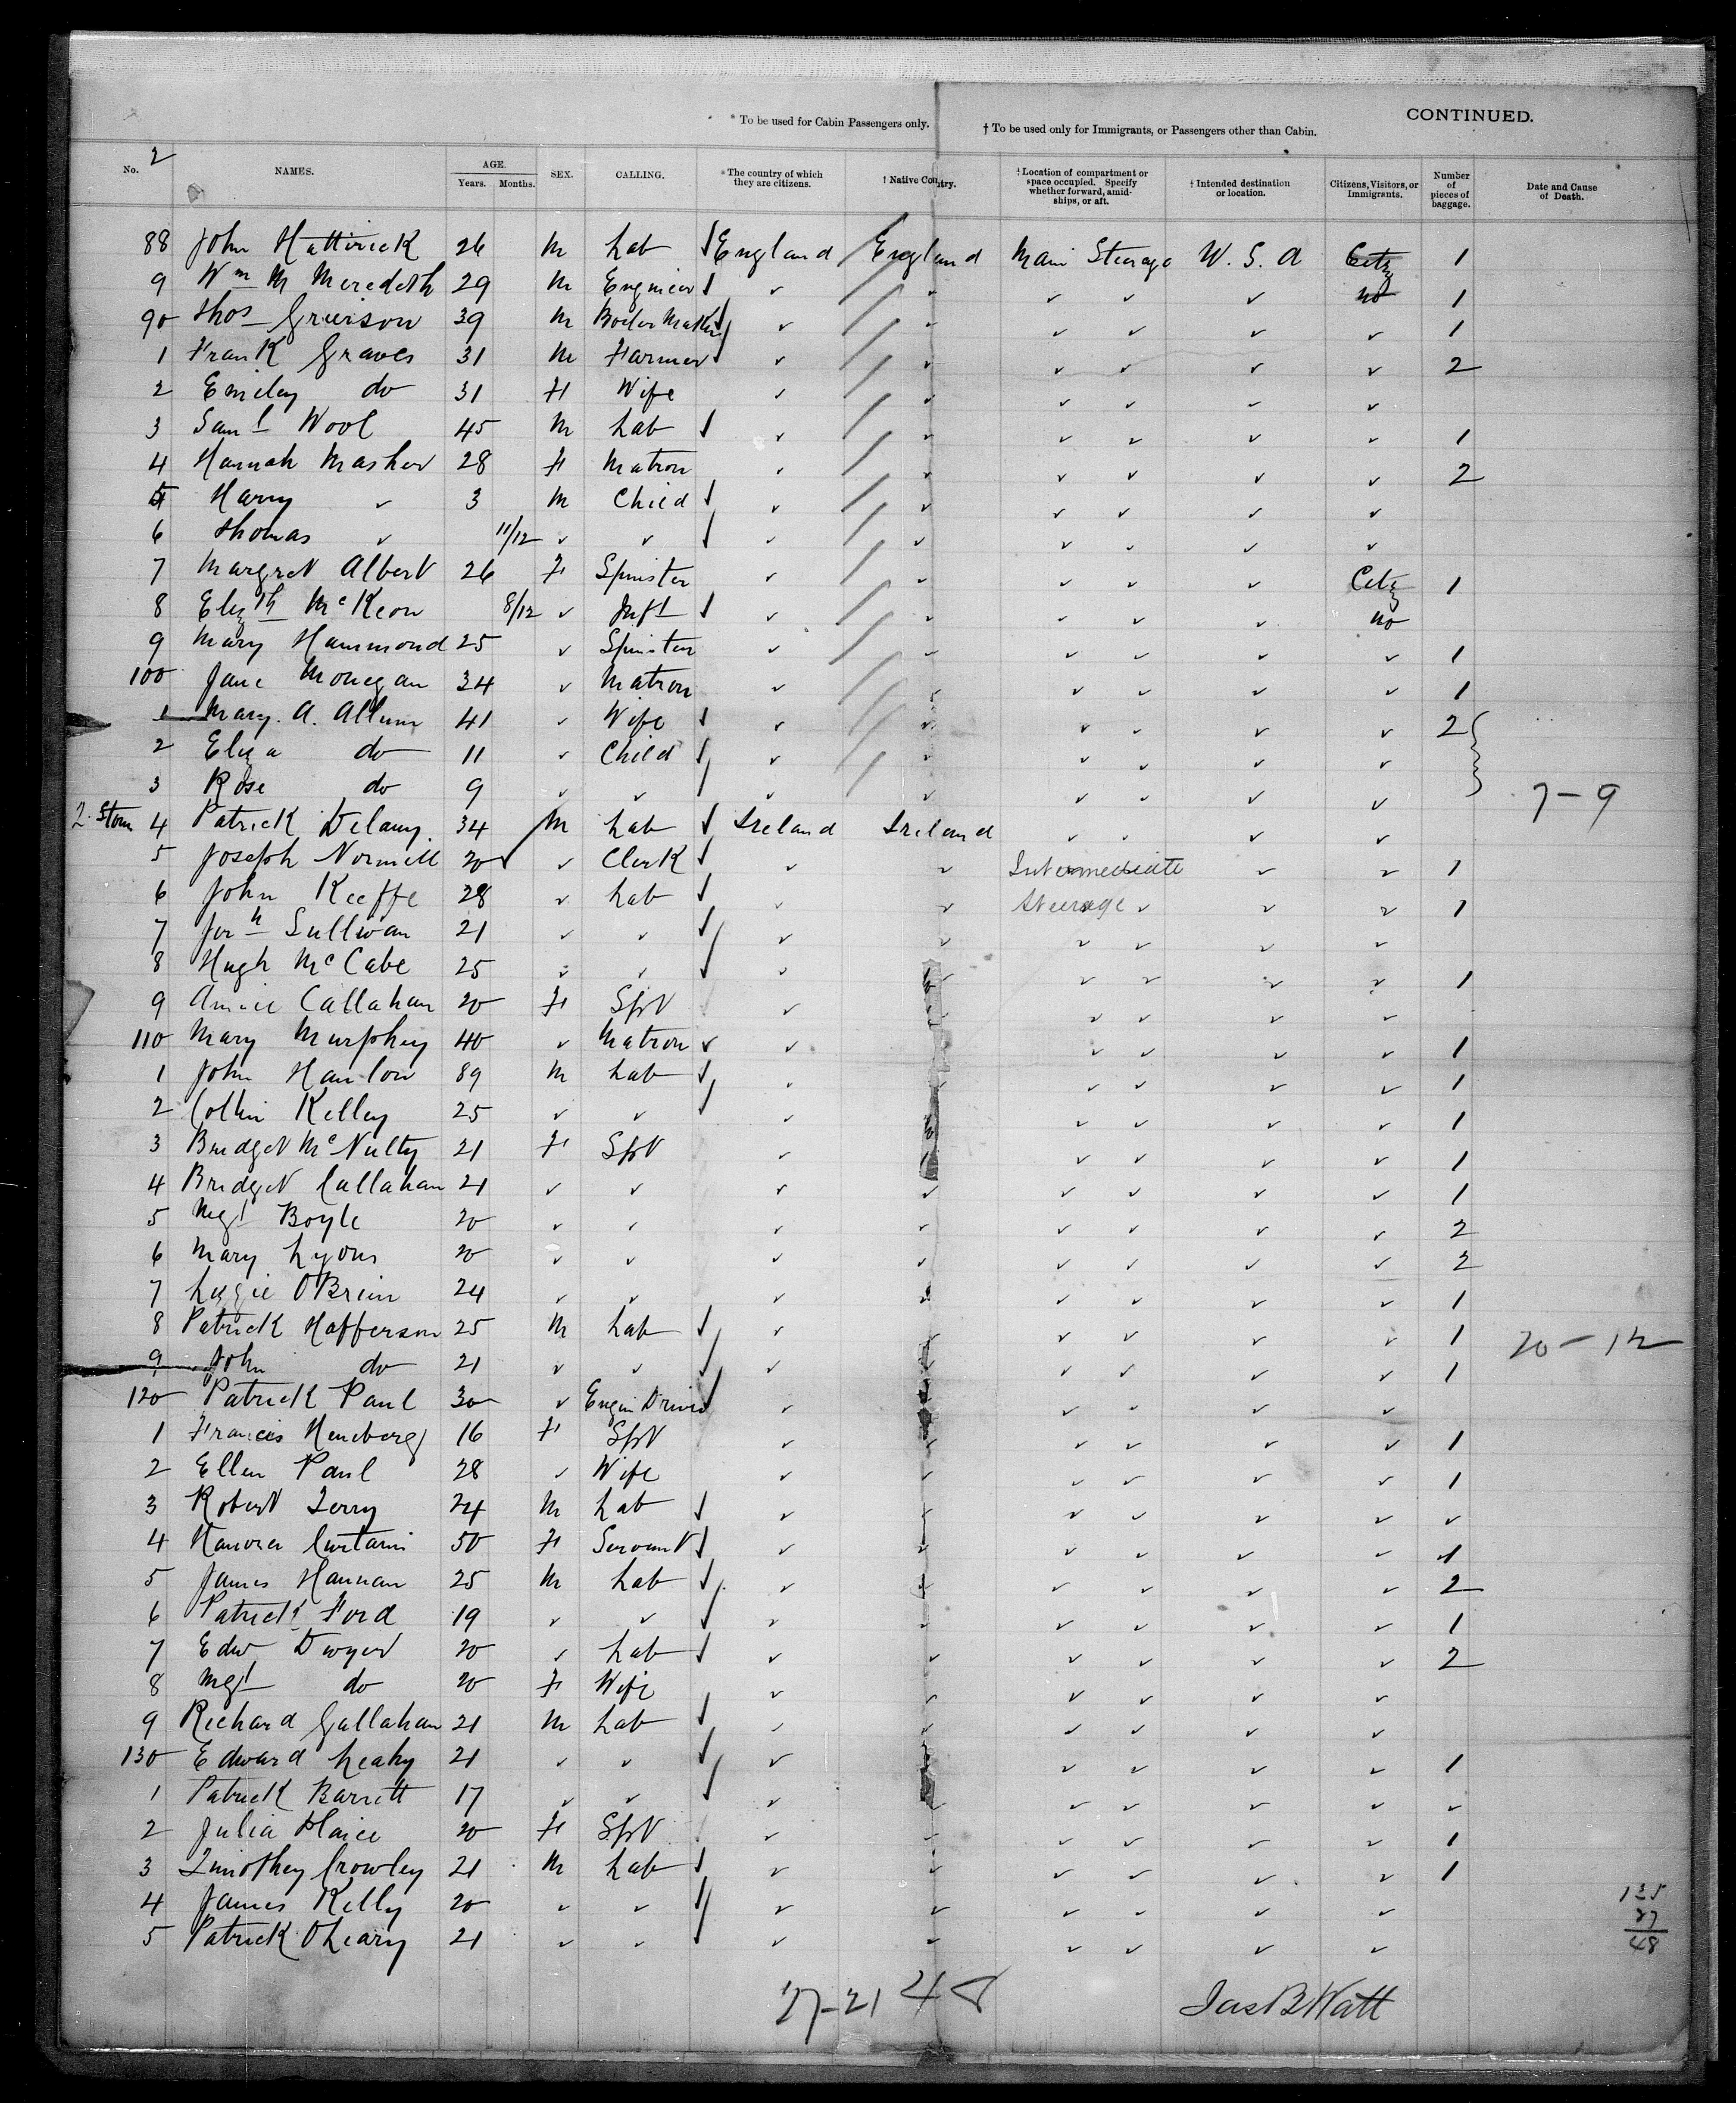 CONTINUED.
* To be used for Cabin Passengers only. † To be used only for Immigrants, or Passengers other than Cabin.
2
No. NAMES. AGE. Years. Months. SEX. CALLING. *The country of which they are citizens. † Native Country. †Location of compartment or space occupied. Specify whether forward, amidships, or aft. † Intended destination or location. Citizens, Visitors, or Immigrants. Number of pieces of baggage. Date and Cause of Death.
88 John Hattrick 26 M Lab England England Main Steerage U.S.A Citz 1
9 Wm M Meredith 29 M Engineer ✓ ✓ ✓ ✓ ✓ no 1
90 Thos Grierson 39 M Boiler Maker ✓ ✓ ✓ ✓ ✓ ✓ 1
1 Frank Graves 31 M Farmer ✓ ✓ ✓ ✓ ✓ ✓ 2
2 Emiley do 31 F Wife ✓ ✓ ✓ ✓ ✓ ✓
3 Saml Wool 45 M Lab ✓ ✓ ✓ ✓ ✓ ✓ 1
4 Hannah Masher 28 F Matron ✓ ✓ ✓ ✓ ✓ ✓ 2
5 Harry ✓ 3 M Child ✓ ✓ ✓ ✓ ✓ ✓
6 Thomas ✓ 11/12 ✓ ✓ ✓ ✓ ✓ ✓ ✓ ✓
7 Margret Albert 26 F Spinster ✓ ✓ ✓ ✓ ✓ Citz 1
8 Elizth McKeon 8/12 ✓ Inft ✓ ✓ ✓ ✓ ✓ no
9 Mary Hammond 25 ✓ Spinster ✓ ✓ ✓ ✓ ✓ ✓ 1
100 Jane Monegan 34 ✓ Matron ✓ ✓ ✓ ✓ ✓ ✓ 1
1 Mary. A. Allum 41 ✓ Wife ✓ ✓ ✓ ✓ ✓ ✓ 2
2 Eliza do 11 ✓ Child ✓ ✓ ✓ ✓ ✓ ✓
3 Rose do 9 ✓ ✓ ✓ ✓ ✓ ✓ ✓ ✓ 7-9
4 Patrick Delany 34 M Lab Ireland Ireland ✓ ✓ ✓ ✓
5 Joseph Normill 20 ✓ Clerk ✓ ✓ Intermediate ✓ ✓ 1
6 John Keeffe 28 ✓ Lab ✓ ✓ Steerage ✓ ✓ ✓ 1
7 Jerh Sullivan 21 ✓ ✓ ✓ ✓ ✓ ✓ ✓ ✓
8 Hugh McCabe 25 ✓ ✓ ✓ ✓ ✓ ✓ ✓ ✓ 1
9 Annie Callahan 20 F Spt ✓ ✓ ✓ ✓ ✓ ✓
110 Mary Murphey 40 ✓ Matron ✓ ✓ ✓ ✓ ✓ ✓ 1
1 John Hanlon 89 M Lab ✓ ✓ ✓ ✓ ✓ ✓ 1
2 Collin Kelley 25 ✓ ✓ ✓ ✓ ✓ ✓ ✓ ✓ 1
3 Bridget McNulty 21 F Spt ✓ ✓ ✓ ✓ ✓ ✓ 1
4 Bridget Callahan 21 ✓ ✓ ✓ ✓ ✓ ✓ ✓ ✓ 1
5 Mgt Boyle 20 ✓ ✓ ✓ ✓ ✓ ✓ ✓ ✓ 2
6 Mary Lyons 20 ✓ ✓ ✓ ✓ ✓ ✓ ✓ ✓ 2
7 Lizzie OBrien 24 ✓ ✓ ✓ ✓ ✓ ✓ ✓ ✓ 1
8 Patrick Hafferson 25 M Lab ✓ ✓ ✓ ✓ ✓ ✓ 1 20-12
9 John do 21 ✓ ✓ ✓ ✓ ✓ ✓ ✓ ✓ 1
120 Patrick Paul 30 ✓ Engin Driver ✓ ✓ ✓ ✓ ✓ ✓
1 Francis 16 F Spt ✓ ✓ ✓ ✓ ✓ ✓ 1
2 Ellen Paul 28 ✓ Wife ✓ ✓ ✓ ✓ ✓ ✓ 1
3 Robert Terry 24 M Lab ✓ ✓ ✓ ✓ ✓ ✓ ✓
4 Hanora Curtain 50 F Servant ✓ ✓ ✓ ✓ ✓ ✓ 1
5 James Hannan 25 M Lab ✓ ✓ ✓ ✓ ✓ ✓ 2
6 Patrick Ford 19 ✓ ✓ ✓ ✓ ✓ ✓ ✓ ✓ 1
7 Edw Dwyer 20 ✓ Lab ✓ ✓ ✓ ✓ ✓ ✓ 2
8 Mgt do 20 F Wife ✓ ✓ ✓ ✓ ✓ ✓
9 Richard Gallahan 21 M Lab ✓ ✓ ✓ ✓ ✓ ✓
130 Edward Leahy 21 ✓ ✓ ✓ ✓ ✓ ✓ ✓ ✓ 1
1 Patrick Barrett 17 ✓ ✓ ✓ ✓ ✓ ✓ ✓ ✓ ✓
2 Julia 20 F Spt ✓ ✓ ✓ ✓ ✓ ✓ 1
3 Timothey Crowley 21 M Lab ✓ ✓ ✓ ✓ ✓ ✓ 1
4 James Kelly 20 ✓ ✓ ✓ ✓ ✓ ✓ ✓ ✓
5 Patrick OLeary 21 ✓ ✓ ✓ ✓ ✓ ✓ ✓ ✓
135
87
48
27-21 48
Jas B Watt